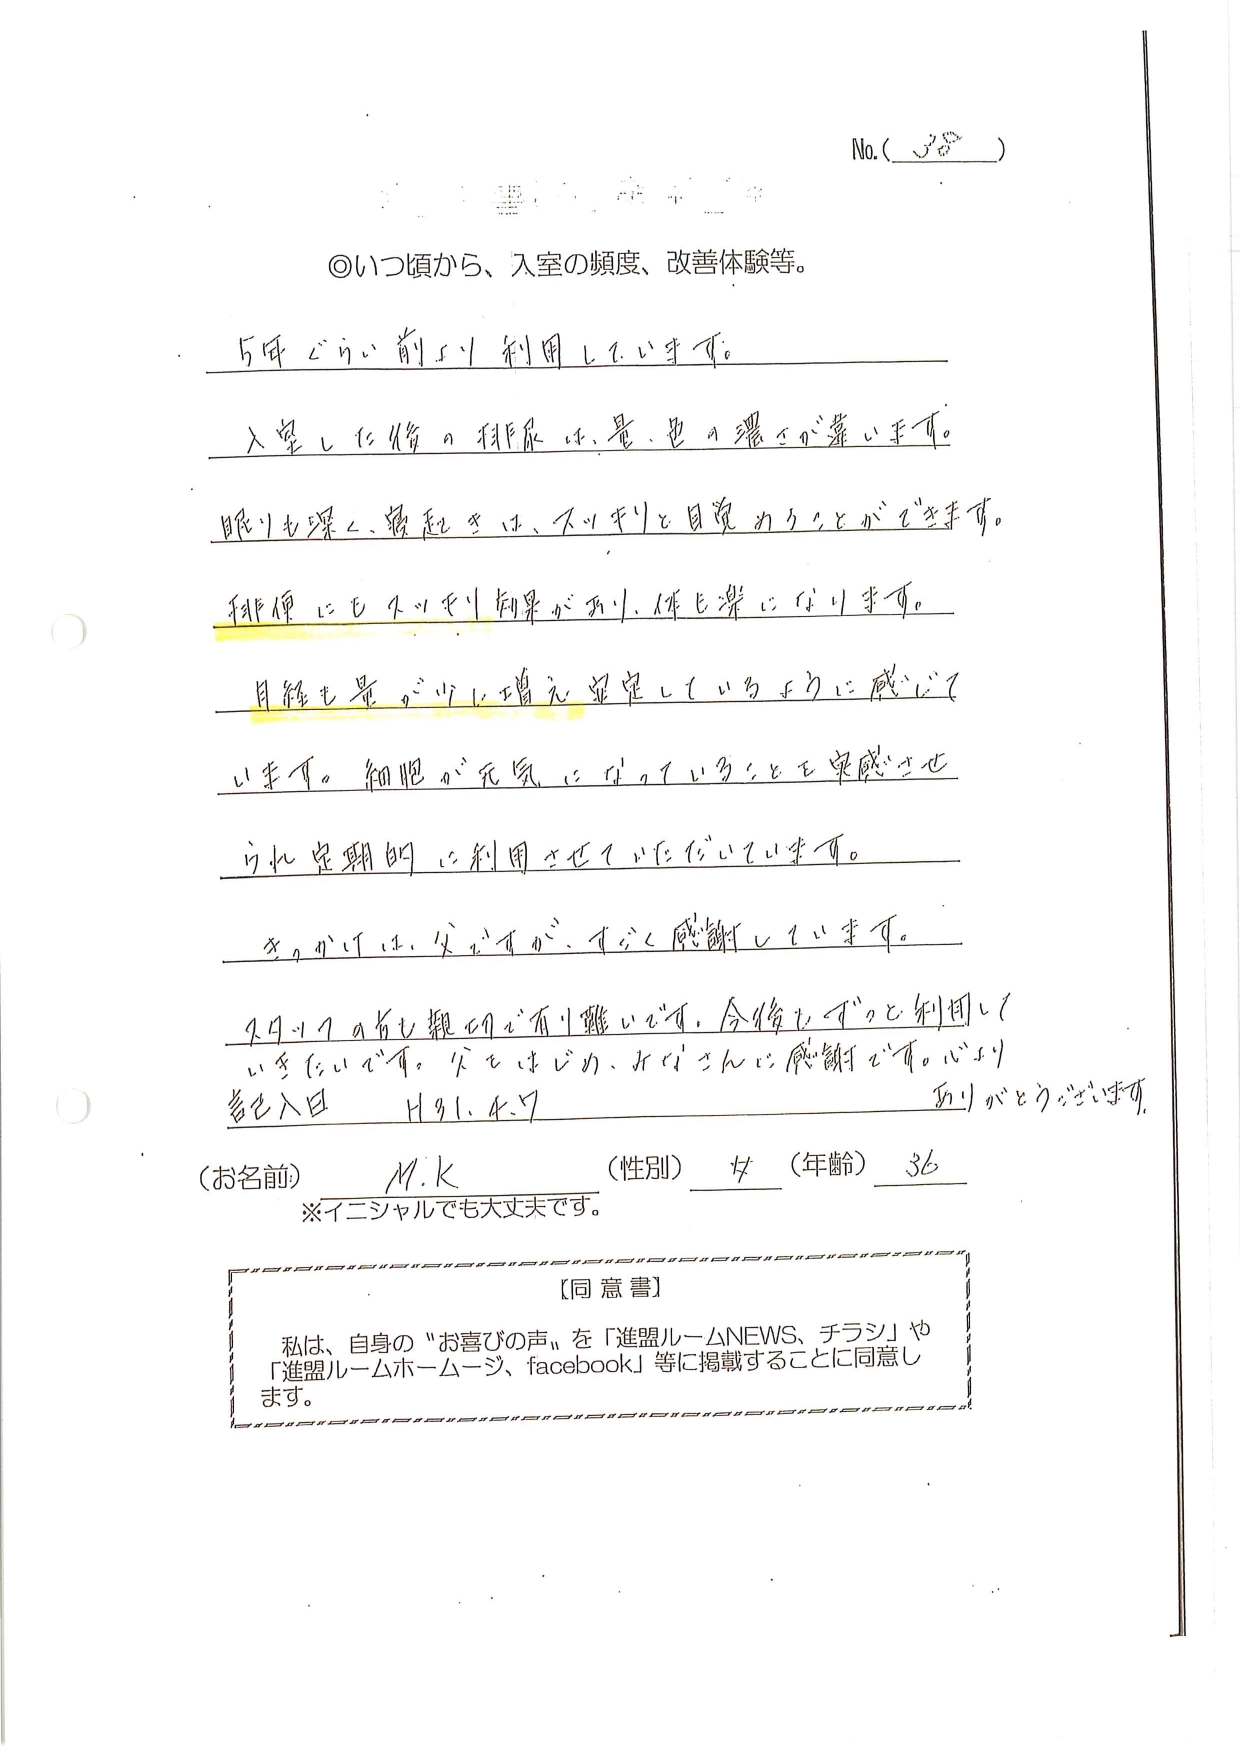 No.( 38 )
◎いつ頃から、入室の頻度、改善体験等。
5年ぐらい前より利用しています。
入室した後の排尿は、量、色の濃さが違います。
眠りも深く、寝起きは、スッキリと目覚めることができます。
排便にもスッキリ効果があり、体も楽になります。
月経も量が少し増え安定しているように感じて
います。細胞が元気になっていることを実感させ
られ定期的に利用させていただいています。
きっかけは、父ですが、すごく感謝しています。
スタッフの方も親切で有り難いです。今後もずっと利用して
いきたいです。父をはじめ、みなさんに感謝です。心より
ありがとうございます。
記入日 H31.4.7
(お名前) M.K (性別) 女 (年齢) 36
※イニシャルでも大丈夫です。
【同意書】
私は、自身の〝お喜びの声〟を「進盟ルームNEWS、チラシ」や
「進盟ルームホームージ、facebook」等に掲載することに同意し
ます。